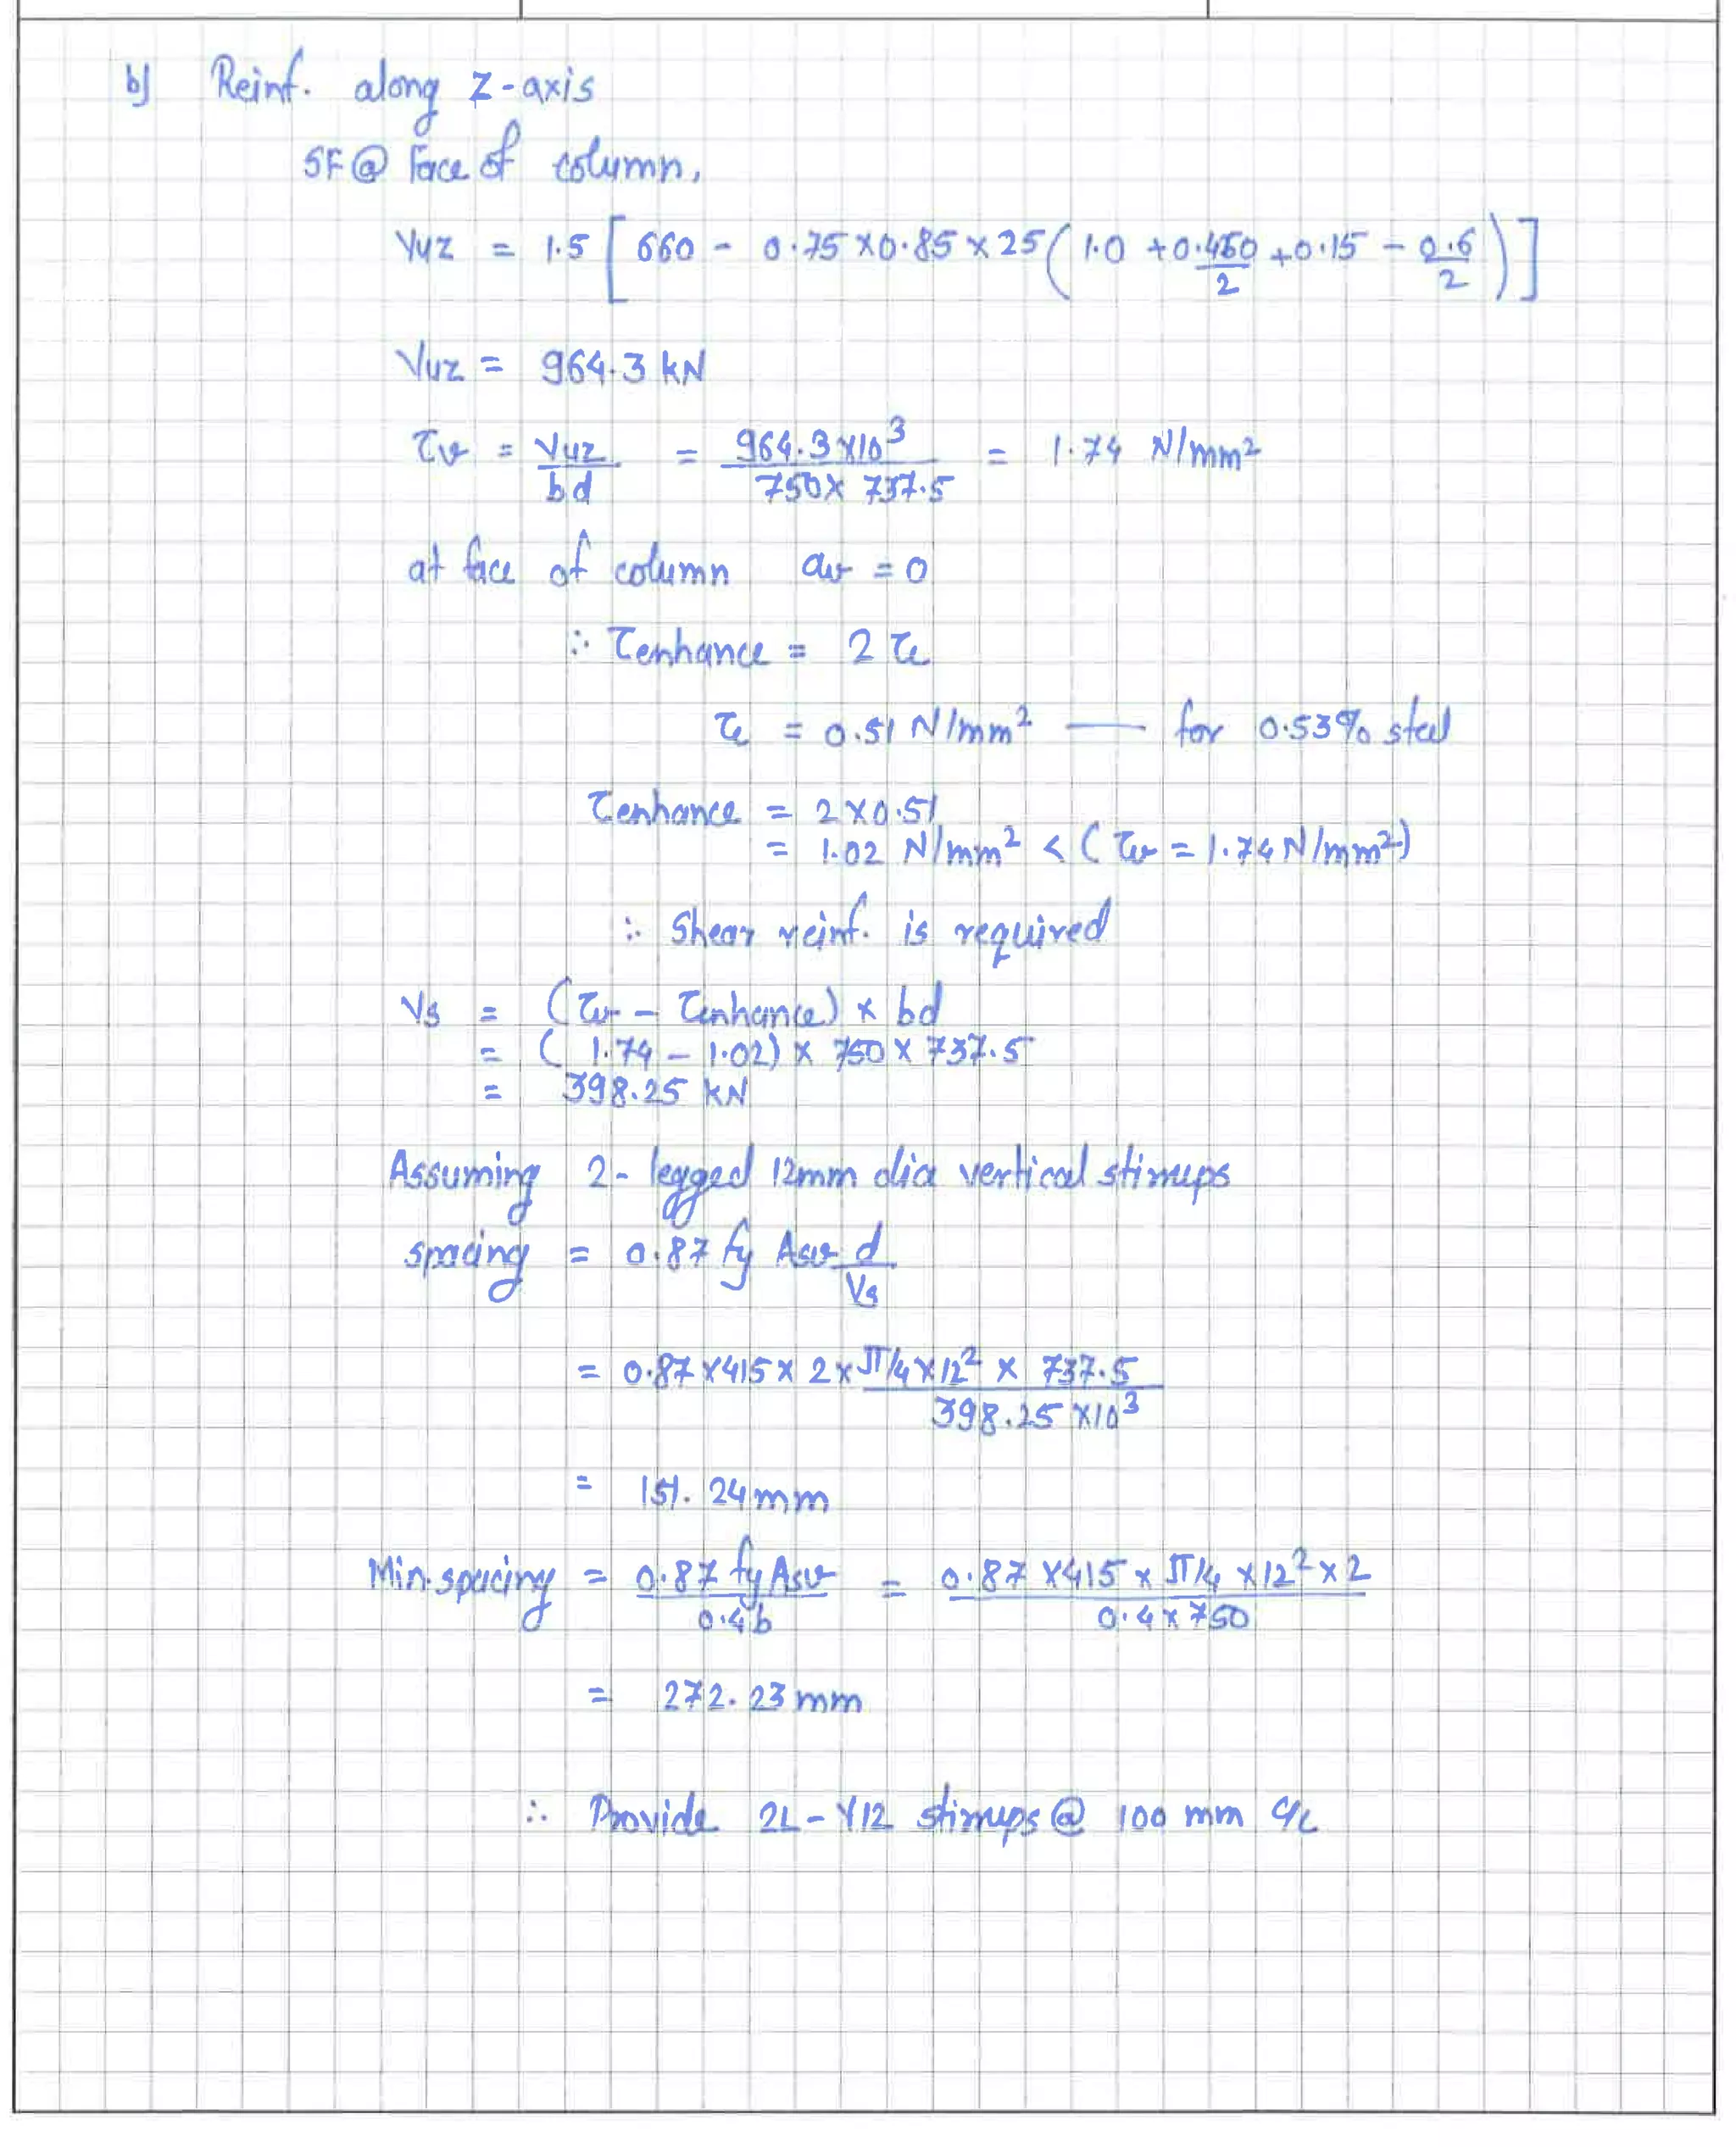 b) Reinf. along Z-axis
SF @ Face of column,
Vuz = 1.5 [ 660 - 0.75 x 0.85 x 25 ( 1.0 + 0.450/2 + 0.15 - 0.6/2 ) ]
Vuz = 964.3 kN
τv = Vuz/bd = 964.3 x 10³ / 750 x 737.5 = 1.74 N/mm²
at face of column av = 0
∴ τenhance = 2 τc
τc = 0.51 N/mm² — for 0.53% steel
τenhance = 2 x 0.51
= 1.02 N/mm² < ( τv = 1.74 N/mm²)
∴ Shear reinf. is required
Vs = (τv - τenhance) x bd
= ( 1.74 - 1.02) x 750 x 737.5
= 398.25 kN
Assuming 2-legged 12mm dia vertical stirrups
spacing = 0.87 fy Asv d/Vs
= 0.87 x 415 x 2 x π/4 x 12² x 737.5 / 398.25 x 10³
= 151.24 mm
Min. spacing = 0.87 fy Asv / 0.4b = 0.87 x 415 x π/4 x 12² x 2 / 0.4 x 750
= 272.23 mm
∴ Provide 2L - Y12 stirrups @ 100 mm c/c